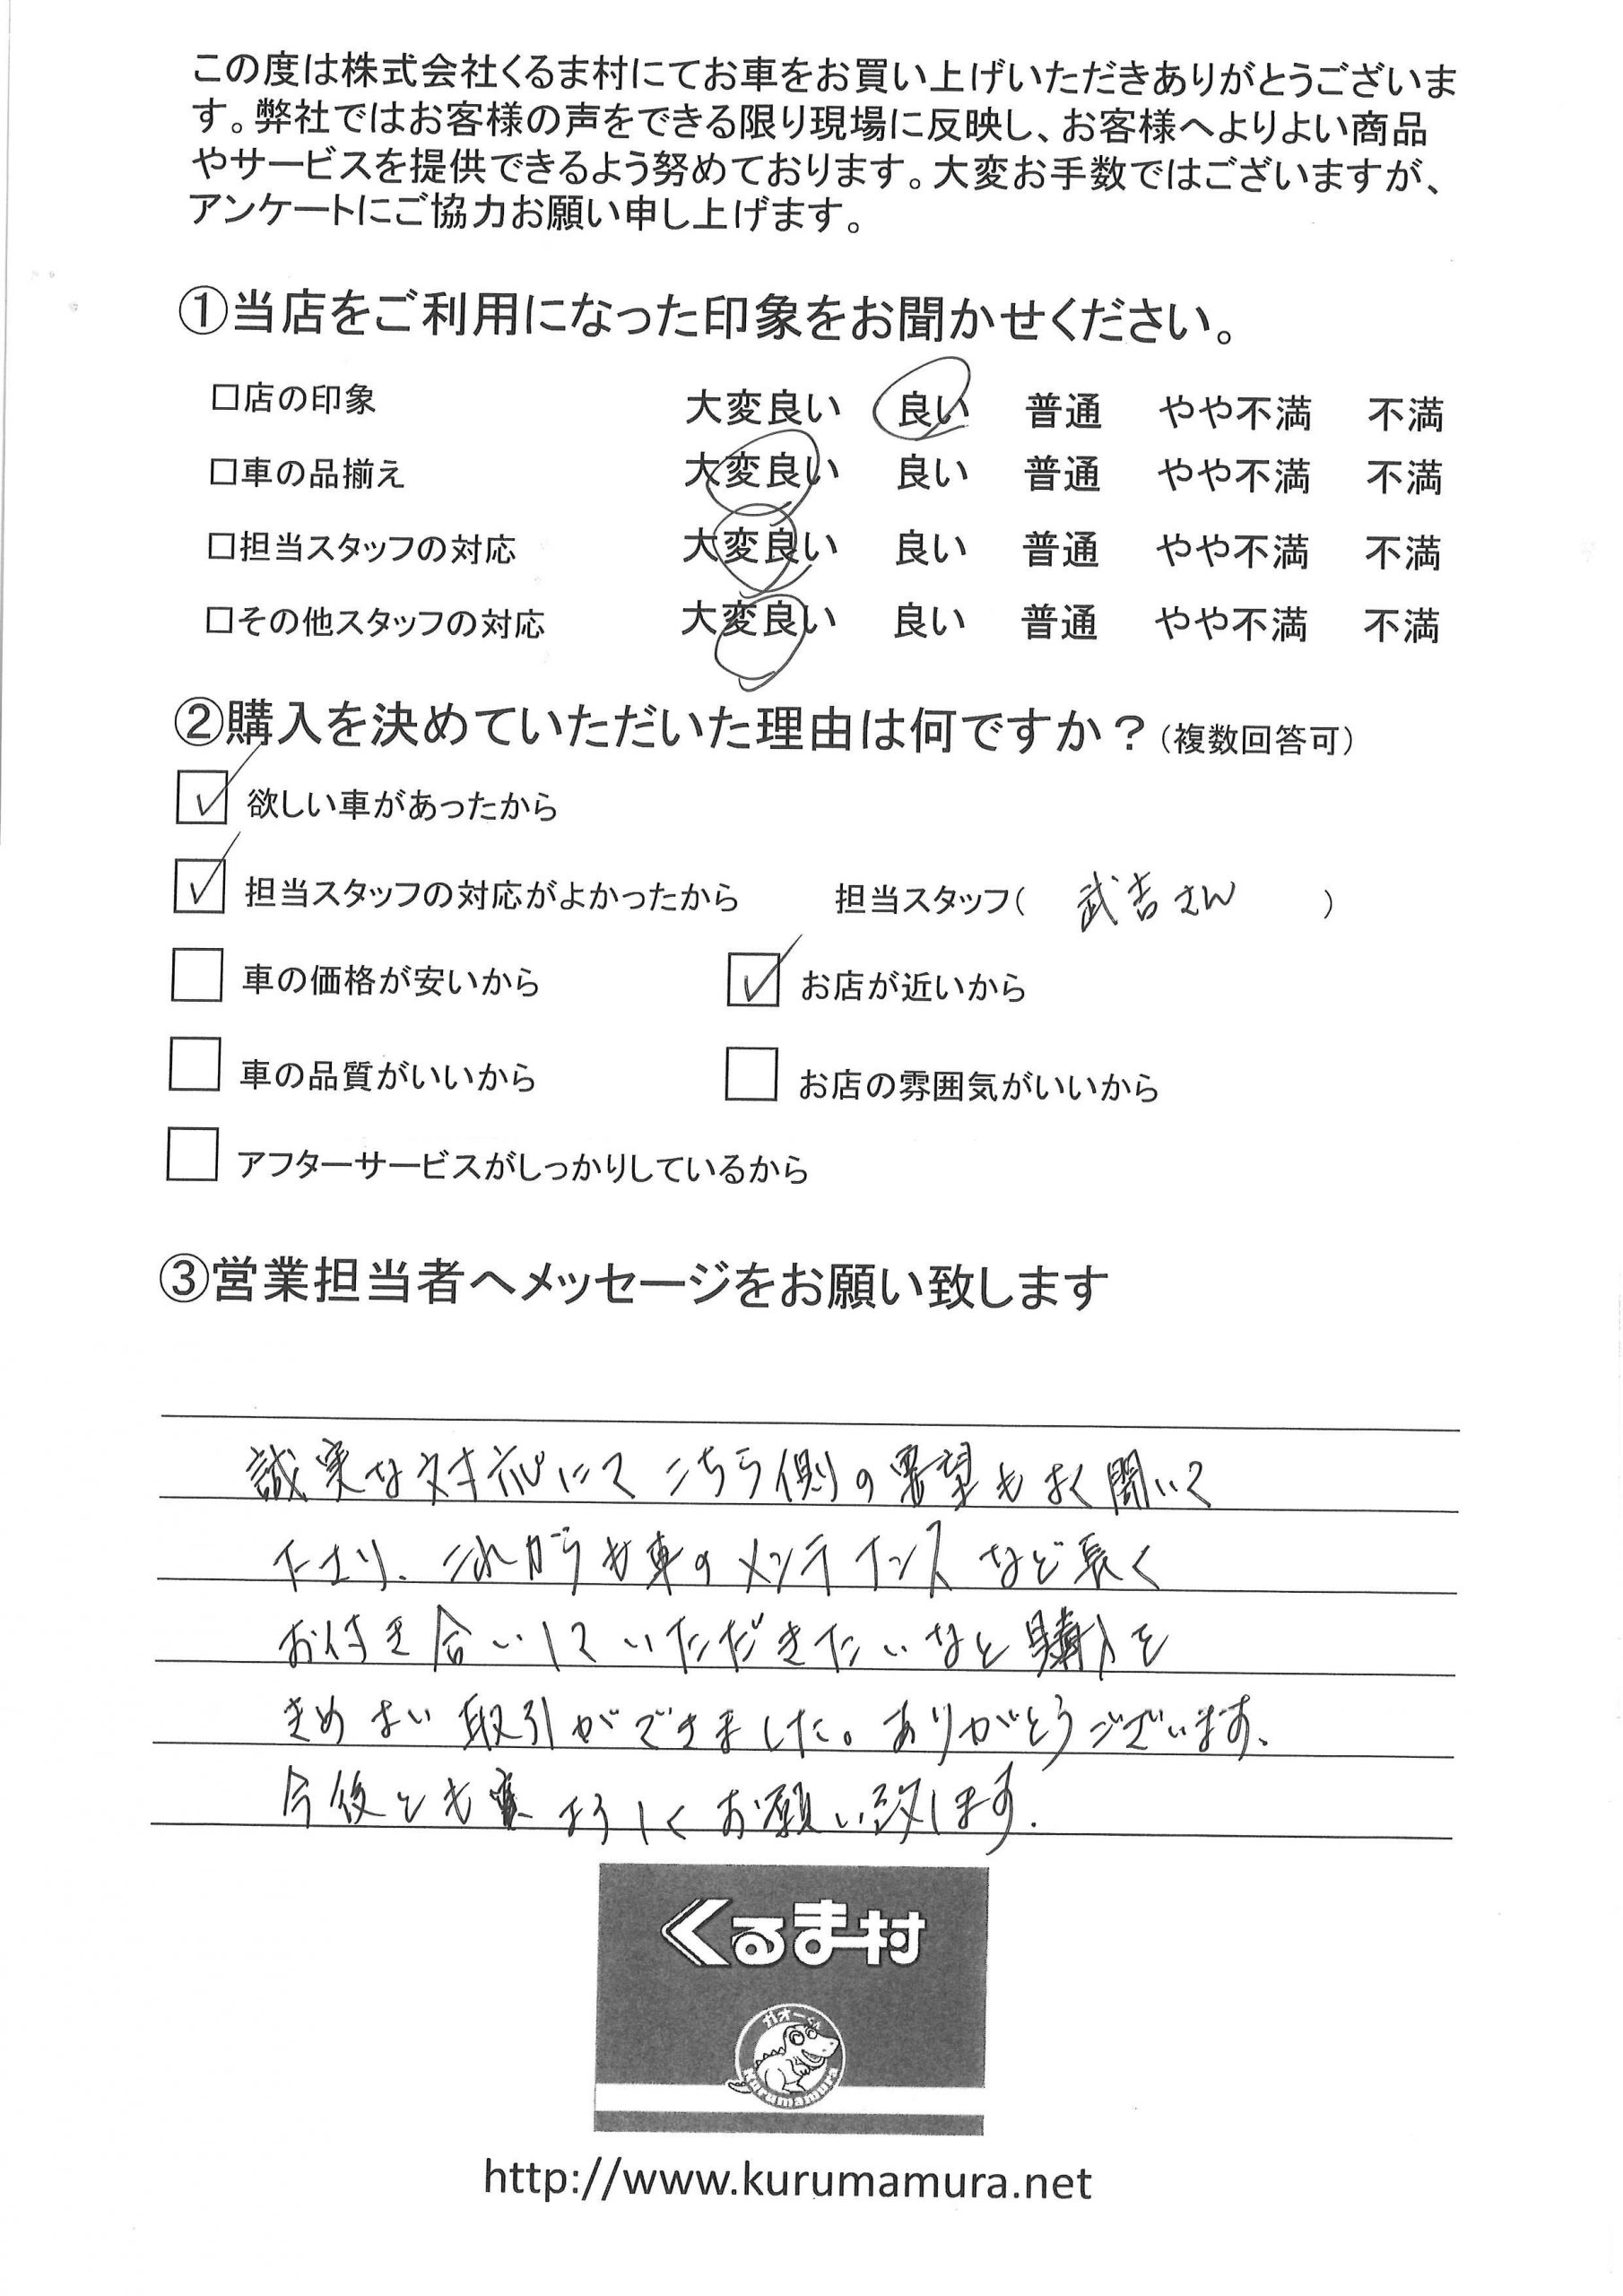 この度は株式会社くるま村にてお車をお買い上げいただきありがとうございま
す。弊社ではお客様の声をできる限り現場に反映し、お客様へよりよい商品
やサービスを提供できるよう努めております。大変お手数ではございますが、
アンケートにご協力お願い申し上げます。
①当店をご利用になった印象をお聞かせください。
□店の印象 大変良い 良い 普通 やや不満 不満
□車の品揃え 大変良い 良い 普通 やや不満 不満
□担当スタッフの対応 大変良い 良い 普通 やや不満 不満
□その他スタッフの対応 大変良い 良い 普通 やや不満 不満
②購入を決めていただいた理由は何ですか？（複数回答可）
欲しい車があったから
担当スタッフの対応がよかったから 担当スタッフ（ 武吉さん ）
車の価格が安いから お店が近いから
車の品質がいいから お店の雰囲気がいいから
アフターサービスがしっかりしているから
③営業担当者へメッセージをお願い致します
誠実な対応にてこちら側の要望もよく聞いて
下さり、これからも車のメンテナンスなど長く
お付き合いしていただきたいなと購入を
きめよい取引ができました。ありがとうございます、
今後とも よろしくお願い致します.
くるま村
ガオーくん
Kurumamura
http://www.kurumamura.net